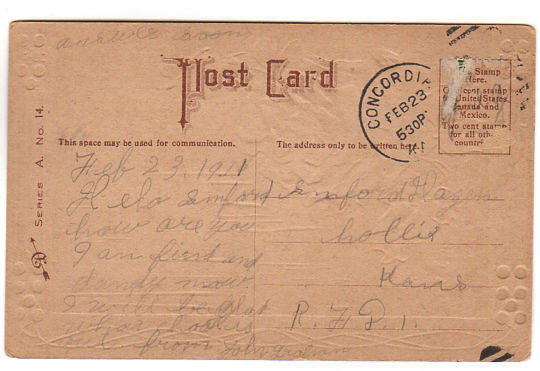 Post Card
Stamp
Here.
One cent stamp
for United States
Canada and
Mexico.
Two cent stamp
for all oth-
countr
CONCORDIA
FEB 23
530P
This space may be used for communication.
The address only to be written here.
SERIES A. No. 14.
Feb 23, 1911
Helo Sanford
how are you
I am first and
dandy now
I will be glad
when
out from John
Sanford
hollis
Kans
R. F. D. 1.